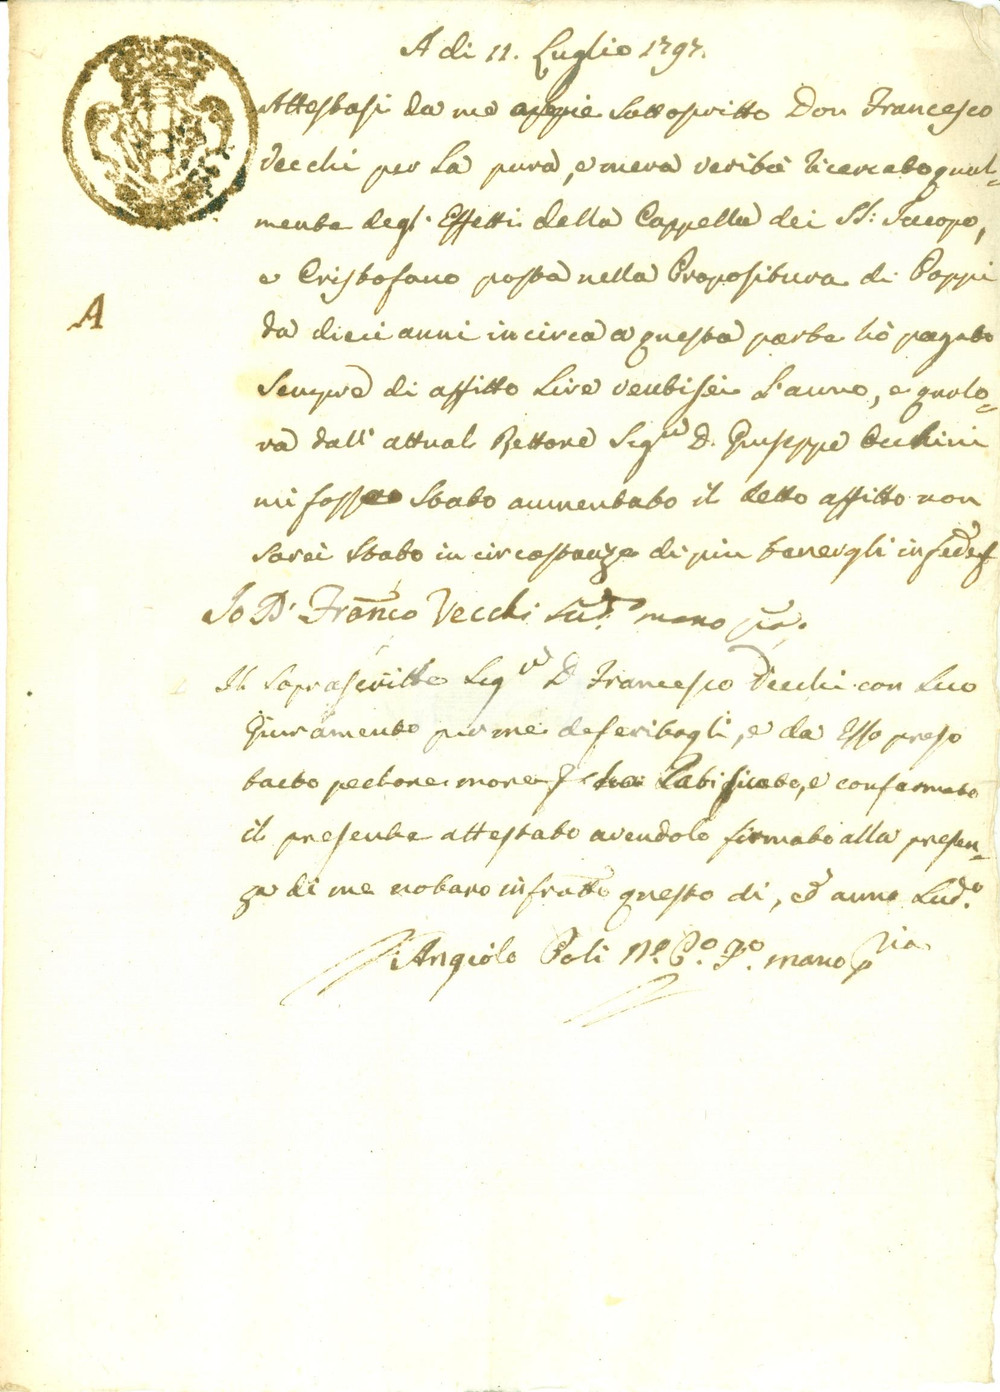 A di 11. Luglio 1797.
Attestasi da me appie Sottoscritto Don Francesco
Vecchi per la pura, e mera verità ricercato qual-
mente degl' Effetti della Cappella dei SS: Jacopo,
e Cristofano posta nella Propositura di Poppi
da dieci anni in circa a questa parte hò pagato
sempre di affitto Lire ventisei l'anno, e qualo-
ra dall' attual Rettore Sigre D. Giuseppe Cecchini
mi fosse stato aumentato il detto affitto non
sarei stato in circostanze di più tenergli in fede
A
Io D. Franco Vecchi Sudo mano pia.
Il Soprascritto Sigre D Francesco Vecchi con suo
Giuramento per me deferitogli, e da Esso preso
tacto pectore more ha Ratificato, e confermato
il presente attestato avendolo firmato alla presen-
za di me notaro infratto questo dì, ed anno Sudo.
Angiolo Poli No. Po. Fo. mano pia